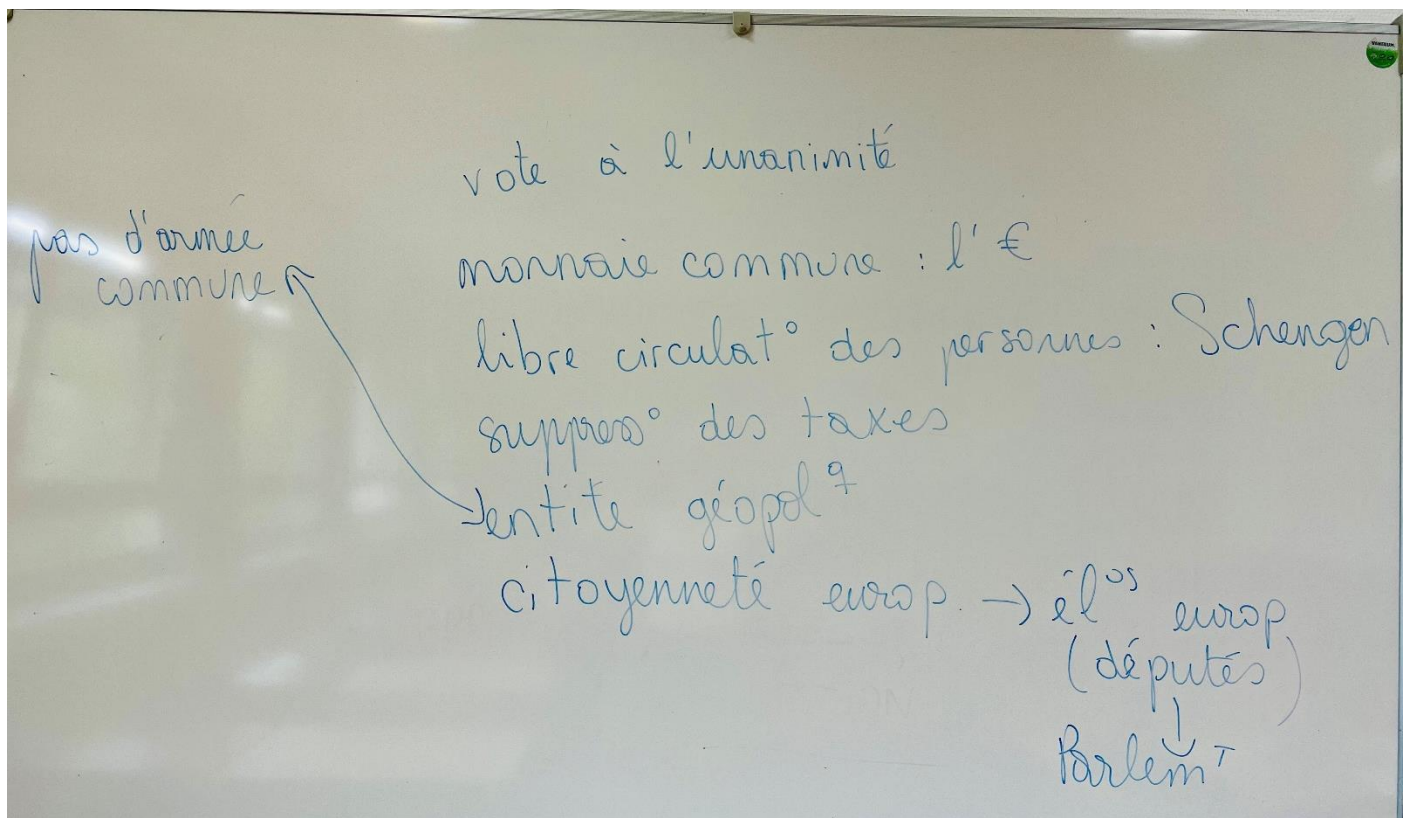 vote à l'unanimité
pas d'armée
commune
monnaie commune : l'€
libre circulat° des personnes : Schengen
suppress° des taxes
entité géopol q
citoyenneté europ. → él os europ
(députés)
↓
Parlem T